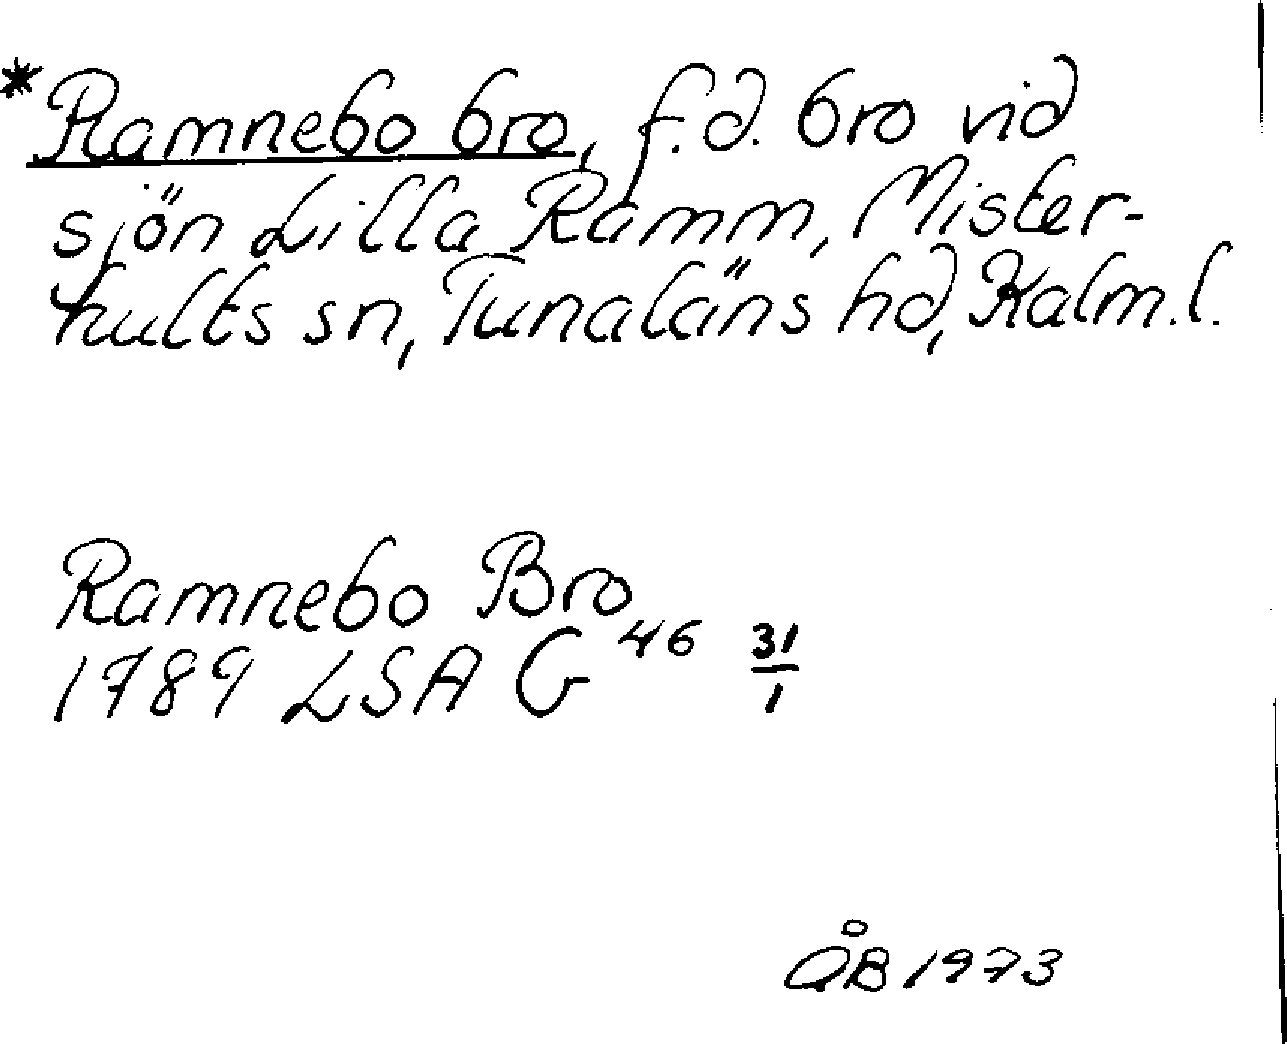 *Ramnebo bro, f.d. bro vid
sjön Lilla Ramm, Mister-
hults sn, Tunaläns hd, Kalm.l.
Ramnebo Bro
1789 LSA G46 31/1
ÅB 1973